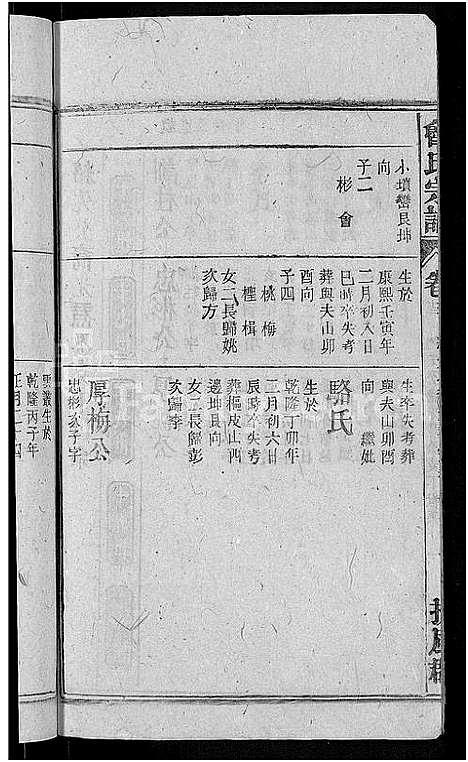 小墳巒艮坤
向
子二
彬會
生於
康熙壬寅年
二月初入日
巳時卒失考
葬與夫山卯
酉向
子四
桃梅
楏楫
女二長歸姚
次歸方
生卒失考葬
與夫山卯酉
向 繼妣
駱氏
生於
乾隆丁卯年
二月初六日
辰時卒失考
葬樞皮山西
邊坤艮向
女二長歸彭
次歸李
厚梅公
忠彬次子字
雲叢生於
乾隆丙子年
正月二十四
氏宗譜
卷